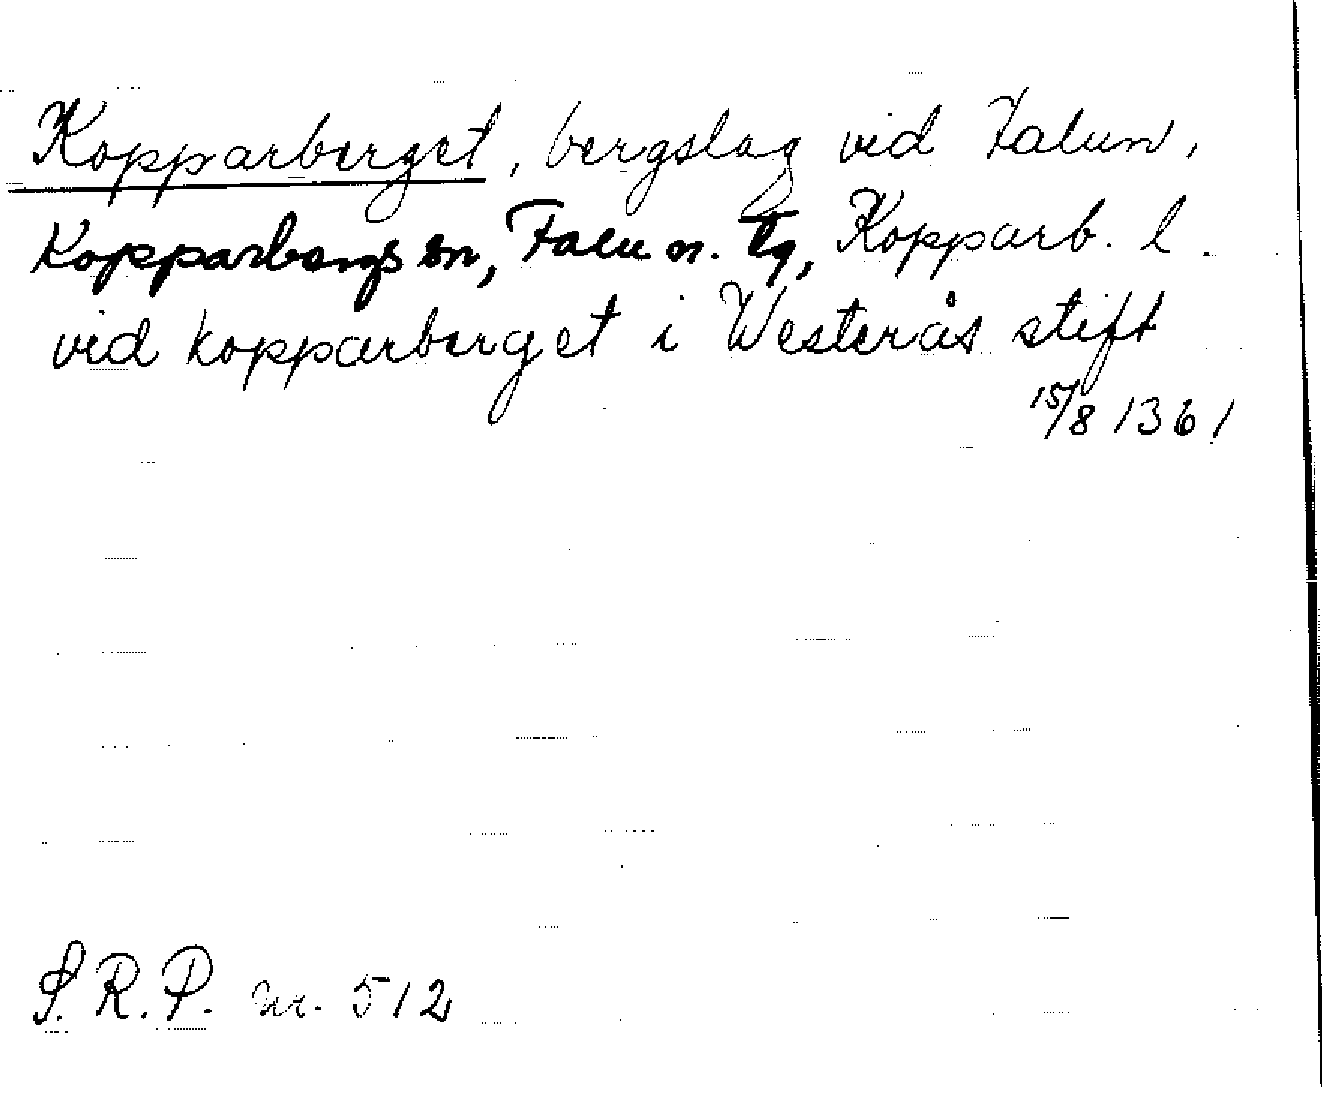 Kopparberget, bergslag vid Falun,
Kopparbergs sn, Falu n. tg, Kopparb. l.
vid kopparberget i Westerås stift
15/8 1361
S.R.P. nr. 512